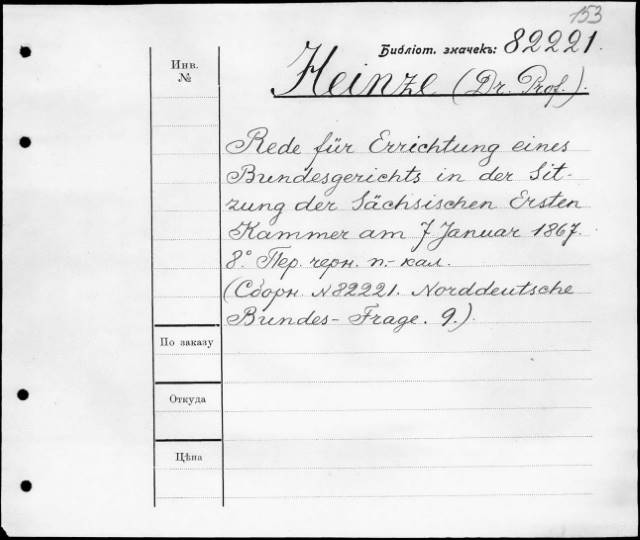 153
Библіот. значекъ: 82221.
Инв.
№
Heinze (Dr. Prof.).
Rede für Errichtung eines
Bundesgerichts in der Sit-
zung der Sächsischen Ersten
Kammer am 7 Januar 1867.
8.° Пер. черн. п.- кал.
(Сборн. № 82221. Norddeutsche
Bundes-Frage. 9.)
По заказу
Откуда
Цѣна